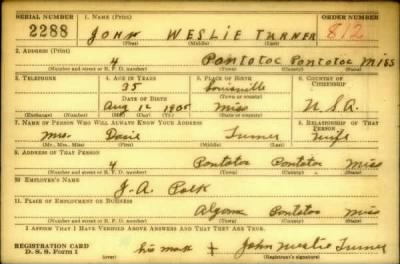 SERIAL NUMBER 1. NAME (Print) ORDER NUMBER
2288 JOHN WESLIE TURNER 812
(First) (Middle) (Last)
2. ADDRESS (Print)
4 Pontotoc Pontotoc Miss
(Number and street or R. F. D. number) (Town) (County) (State)
3. TELEPHONE 4. AGE IN YEARS 5. PLACE OF BIRTH 6. COUNTRY OF CITIZENSHIP
35 Louisville
DATE OF BIRTH (Town or county)
Aug 12 1905 Miss U.S.A.
(Exchange) (Number) (Mo.) (Day) (Yr.) (State or country)
7. NAME OF PERSON WHO WILL ALWAYS KNOW YOUR ADDRESS 8. RELATIONSHIP OF THAT PERSON
Mrs. Turner Wife
(Mr., Mrs., Miss) (First) (Middle) (Last)
9. ADDRESS OF THAT PERSON
4 Pontotoc Pontotoc Miss
(Number and street or R. F. D. number) (Town) (County) (State)
10. EMPLOYER'S NAME
J. A. Polk
11. PLACE OF EMPLOYMENT OR BUSINESS
Algoma Pontotoc Miss
(Number and street or R. F. D. number) (Town) (County) (State)
I AFFIRM THAT I HAVE VERIFIED ABOVE ANSWERS AND THAT THEY ARE TRUE.
REGISTRATION CARD
D. S. S. Form 1 his mark + John Weslie Turner
(over) (Registrant's signature)